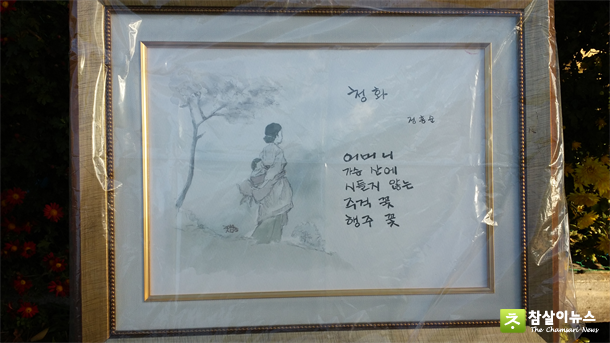 정화
어머니
가슴 산에
시들지 않는
주걱 꽃
행주 꽃
참살이뉴스
The Chamsari News